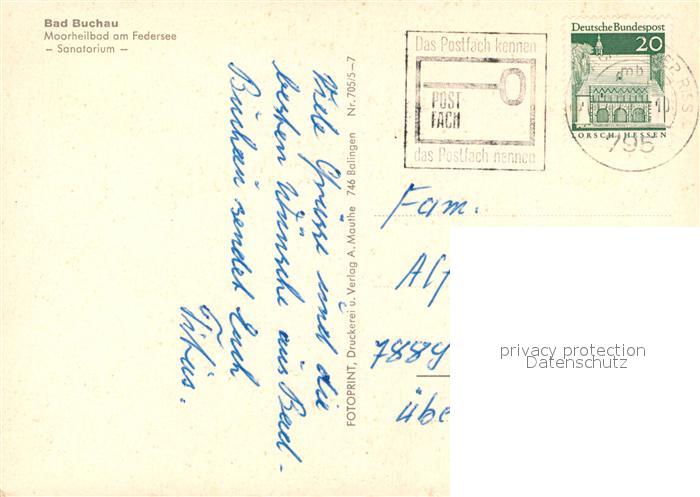 Bad Buchau
Moorheilbad am Federsee
– Sanatorium –
Viele Grüsse und die
besten Wünsche aus Bad-
Buchau sendet Euch
FOTOPRINT, Druckerei u. Verlag A. Mauthe 746 Balingen Nr. 705/5–7
Das Postfach kennen
POST
FACH
das Postfach nennen
Deutsche Bundespost
20
ORSCH/HESSEN
mb
10
795
Fam.
Alf
7889
übe
privacy protection
Datenschutz